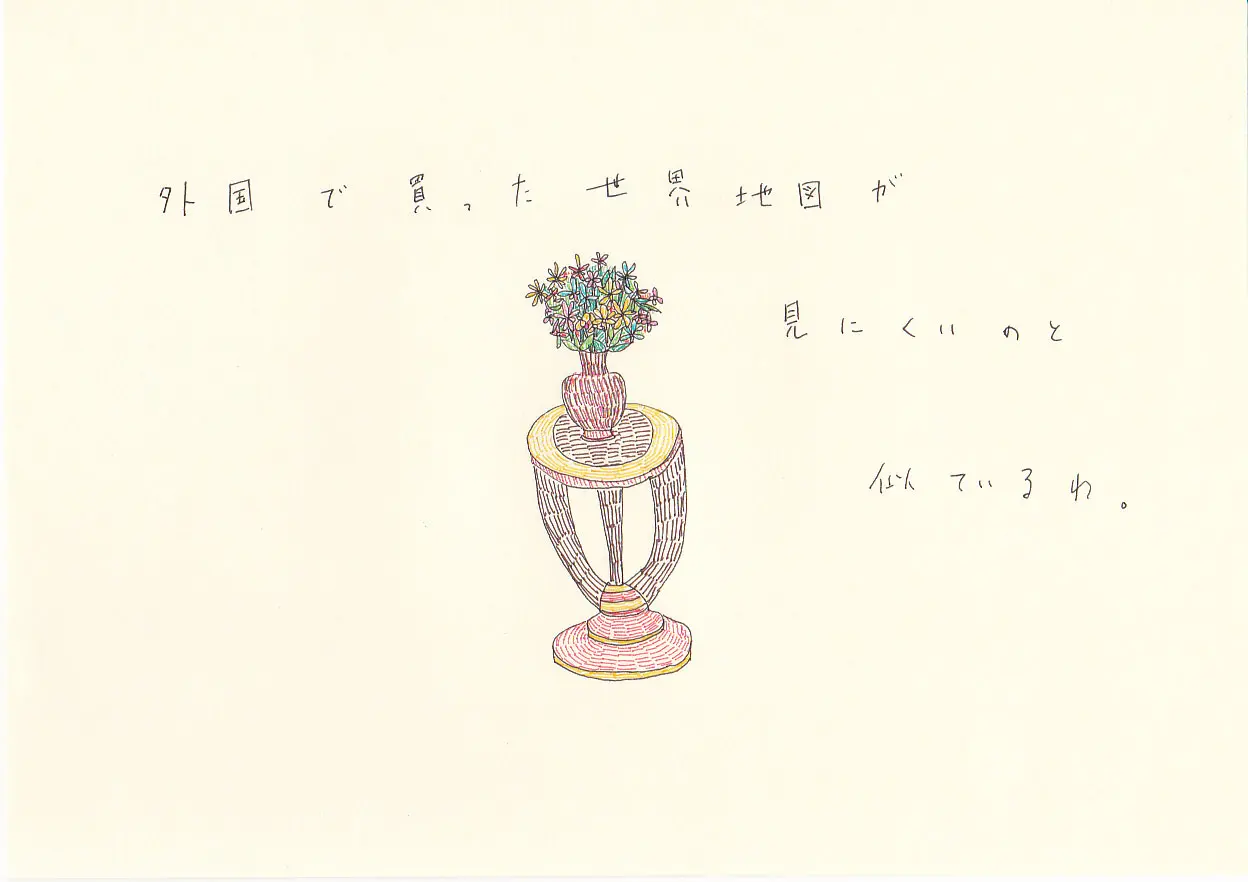 外国で買った世界地図が
見にくいのと
似ているわ。